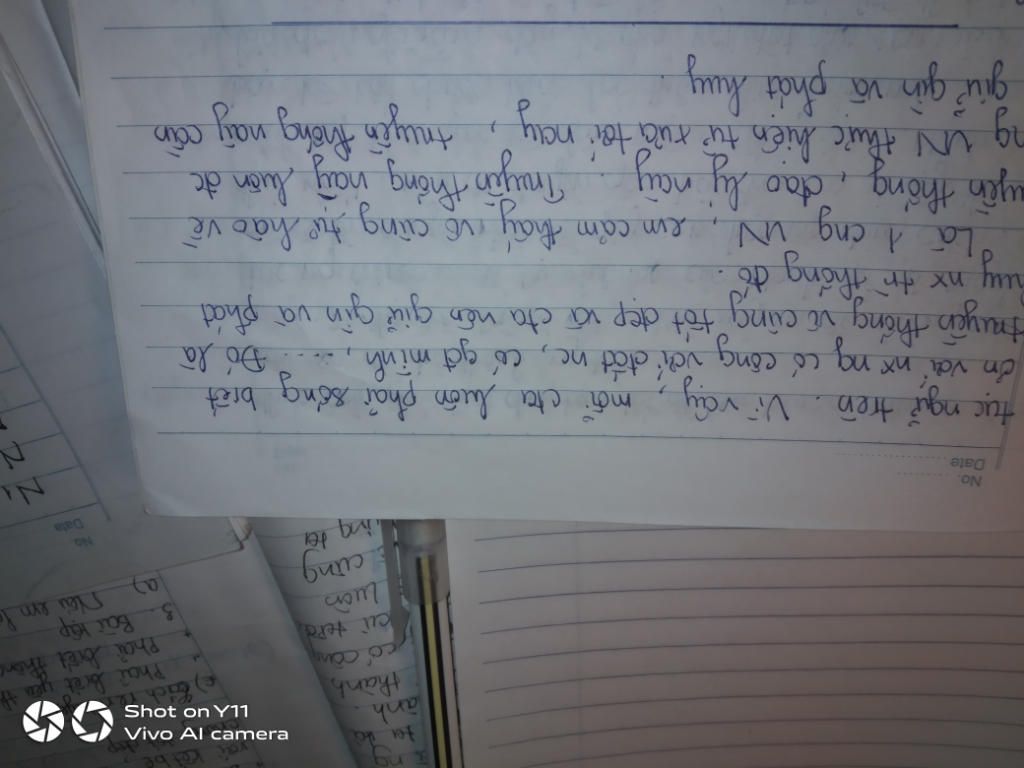 No.
Date
tục ngữ trên. Vì vậy, mỗi cta luôn phải sống biết
ơn với nx ng có công với đất nc, có gđ mình, .... Đó là
truyền thống vô cùng tốt đẹp và cta nên giữ gìn và phát
huy nx tr thống đó.
Là 1 cng VN, em cảm thấy vô cùng tự hào về
truyền thống, đạo lý này. Truyền thống này luôn đc
ng VN thực hiện từ xưa tới nay, truyền thống này cần
giữ gìn và phát huy.
No.
Date
N
3. Bài tập
a) Nếu em
Phải biết
Phải biết yêu
luôn
cũng
có câu
thành
anh
Shot on Y11
Vivo AI camera